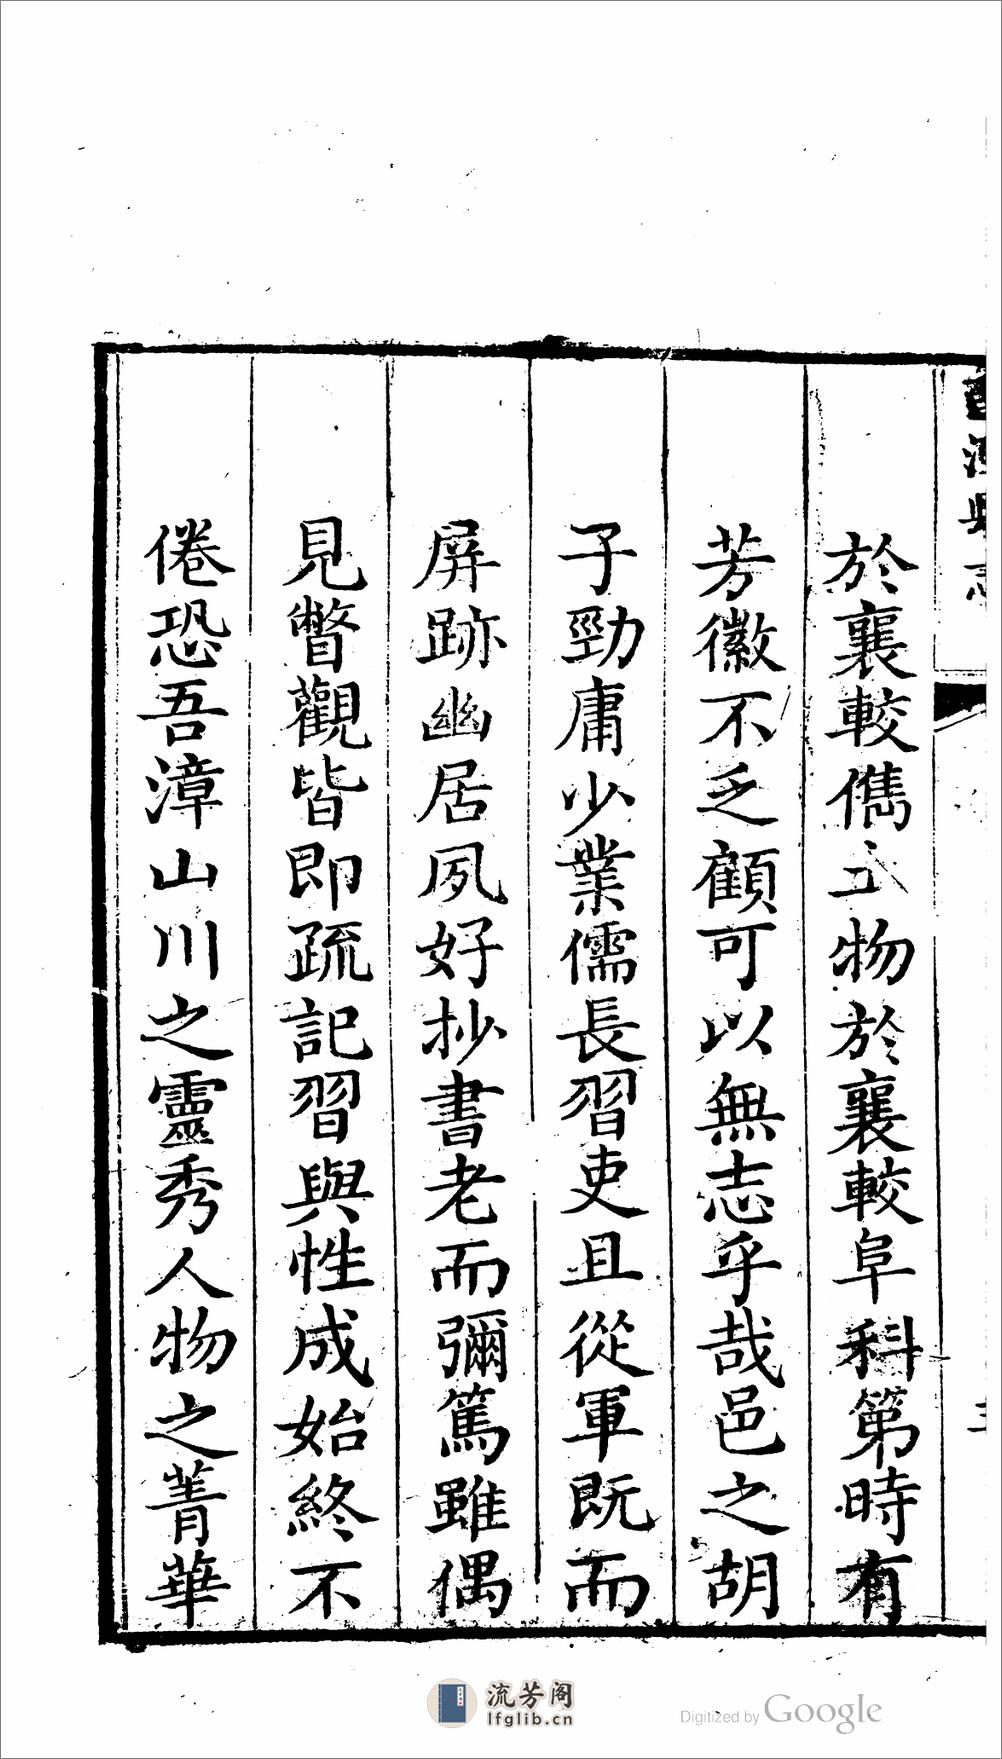 於襄較儁人物於襄較阜科第時有
芳徽不乏顧可以無志乎哉邑之胡
子勁庸少業儒長習吏且從軍既而
屏跡幽居夙好抄書老而彌篤雖偶
見瞥觀皆即疏記習與性成始終不
倦恐吾漳山川之靈秀人物之菁華
流芳阁
lfglib.cn
Digitized by Google